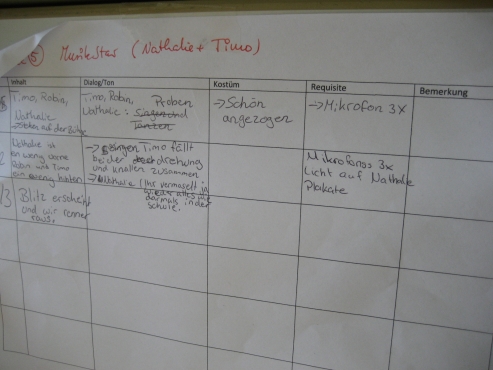 Musikstar (Nathalie + Timo)
Inhalt Dialog/Ton Kostüm Requisite Bemerkung
Timo, Robin,
Nathalie
auf der Bühne
Timo, Robin, Proben
Nathalie: Singen und
Tanzen
→ Schön
angezogen
→ Mikrofon 3x
Nathalie ist
ein wenig vorne
Robin und Timo
ein wenig hinten
→ Singen Timo fällt
bei der drehung
und knallen zusammen.
→ Nathalie (Ihr vermasselt
wieder alles wie
damals in der
Schule.
Mikrofongs 3x
Licht auf Nathalie
Plakate
3 Blitz erscheint
und wir rennen
raus.